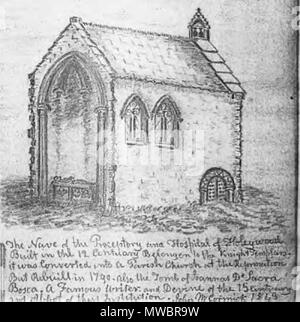 The Nave of the Preceptory and Hospital of Holeywood
Built in the 12 Centuary Belongen to the Knight Templars
it was Converted into a Parish Church at the reformation
But Rebuilt in 1790. also the Tomb of Joannas De Sacra
Bosca, A Famous Writer and Devine of the 13 Centuary
and Abbot of this Institution. John McCormick 1843
alamy
Image ID: MWBR9W
www.alamy.com